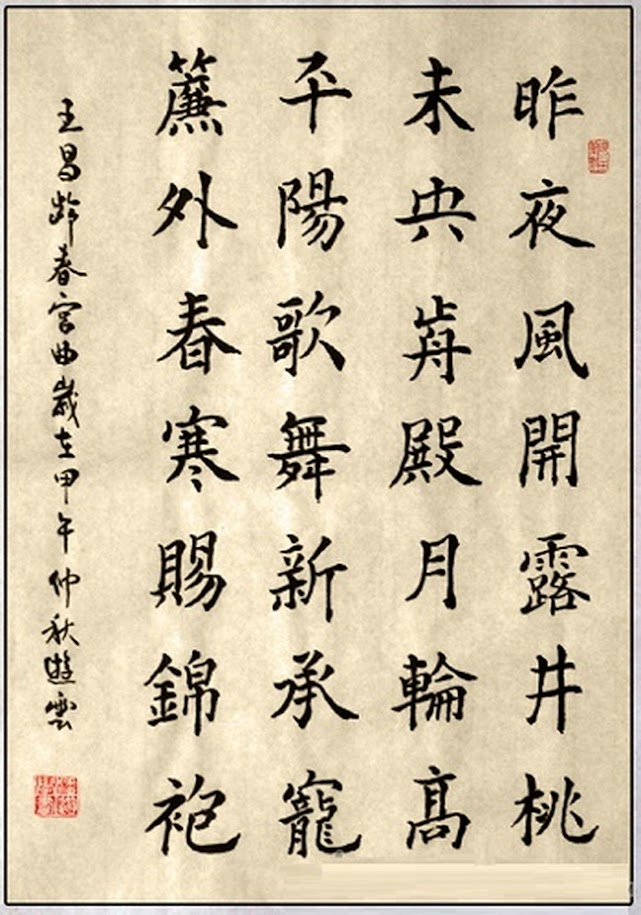 昨夜風開露井桃
未央歬殿月輪髙
平陽歌舞新承寵
簾外春寒賜錦袍
王昌齡春宮曲歲在甲午仲秋遊雲